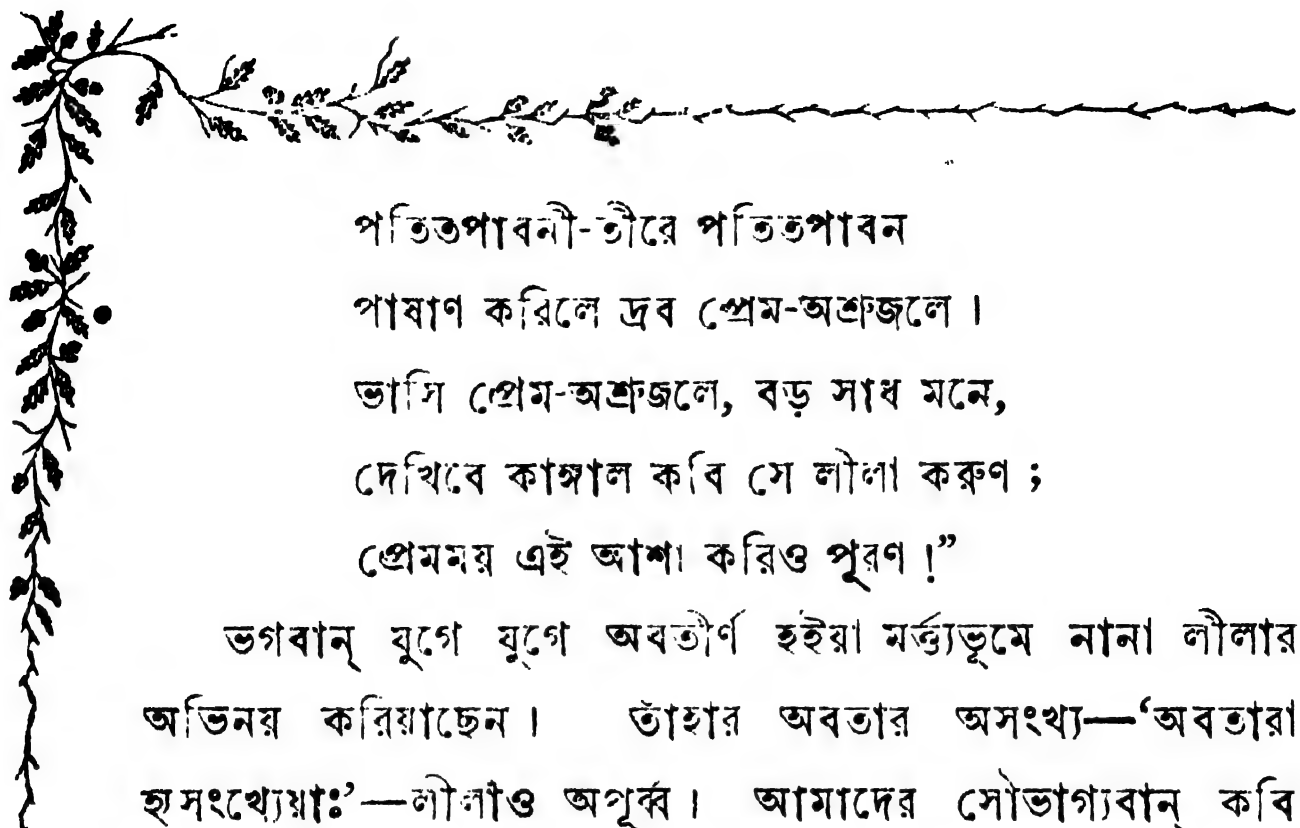 পতিতপাবনী-তীরে পতিতপাবন
পাষাণ করিলে দ্রব প্রেম-অশ্রুজলে।
ভাসি প্রেম-অশ্রুজলে, বড় সাধ মনে,
দেখিবে কাঙ্গাল কবি সে লীলা করুণ;
প্রেমময় এই আশা করিও পূরণ!”
ভগবান্ যুগে যুগে অবতীর্ণ হইয়া মর্ত্ত্যভূমে নানা লীলার
অভিনয় করিয়াছেন। তাঁহার অবতার অসংখ্য—‘অবতারা
হ্যসংখ্যেয়াঃ’—লীলাও অপূর্ব্ব। আমাদের সৌভাগ্যবান্ কবি